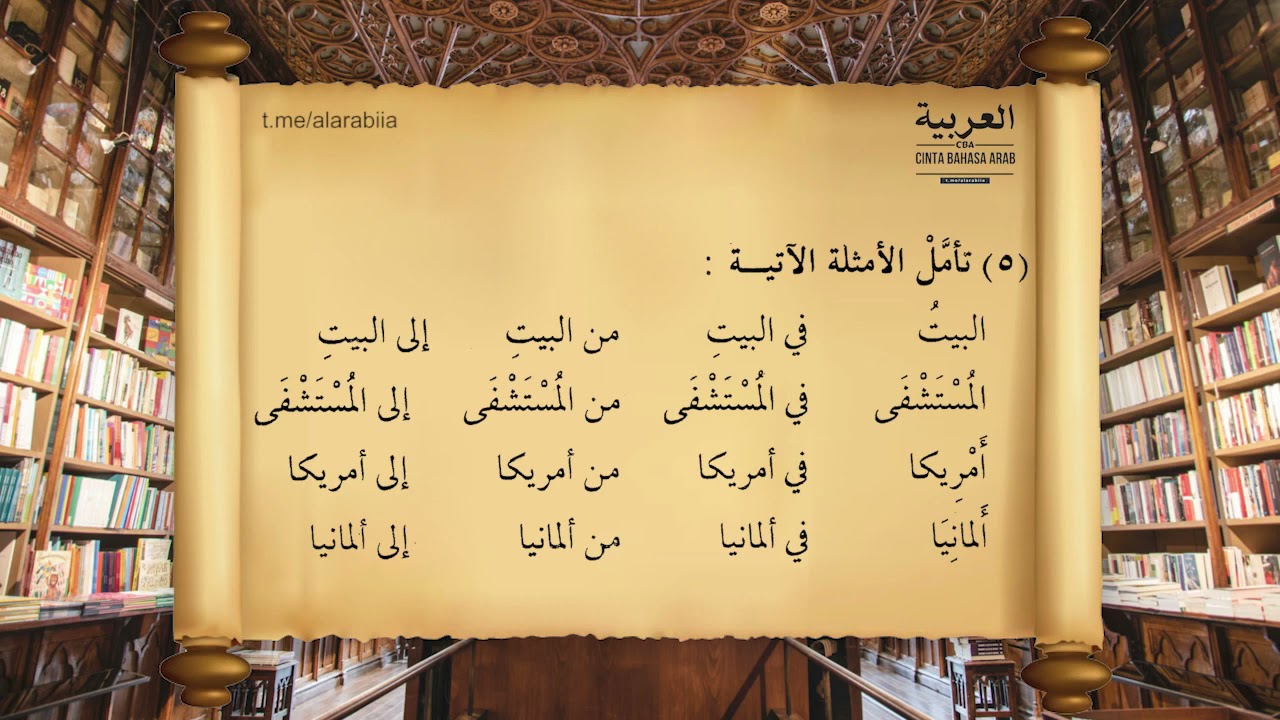 t.me/alarabiia
العربية
CBA
CINTA BAHASA ARAB
t.me/alarabiia
(٥) تأمَّلْ الأمثلة الآتيـــة :
البيتُ في البيتِ من البيتِ إلى البيتِ
المُسْتَشْفَى في المُسْتَشْفَى من المُسْتَشْفَى إلى المُسْتَشْفَى
أَمْرِيكا في أمريكا من أمريكا إلى أمريكا
أَلمانِيَا في ألمانيا من ألمانيا إلى ألمانيا